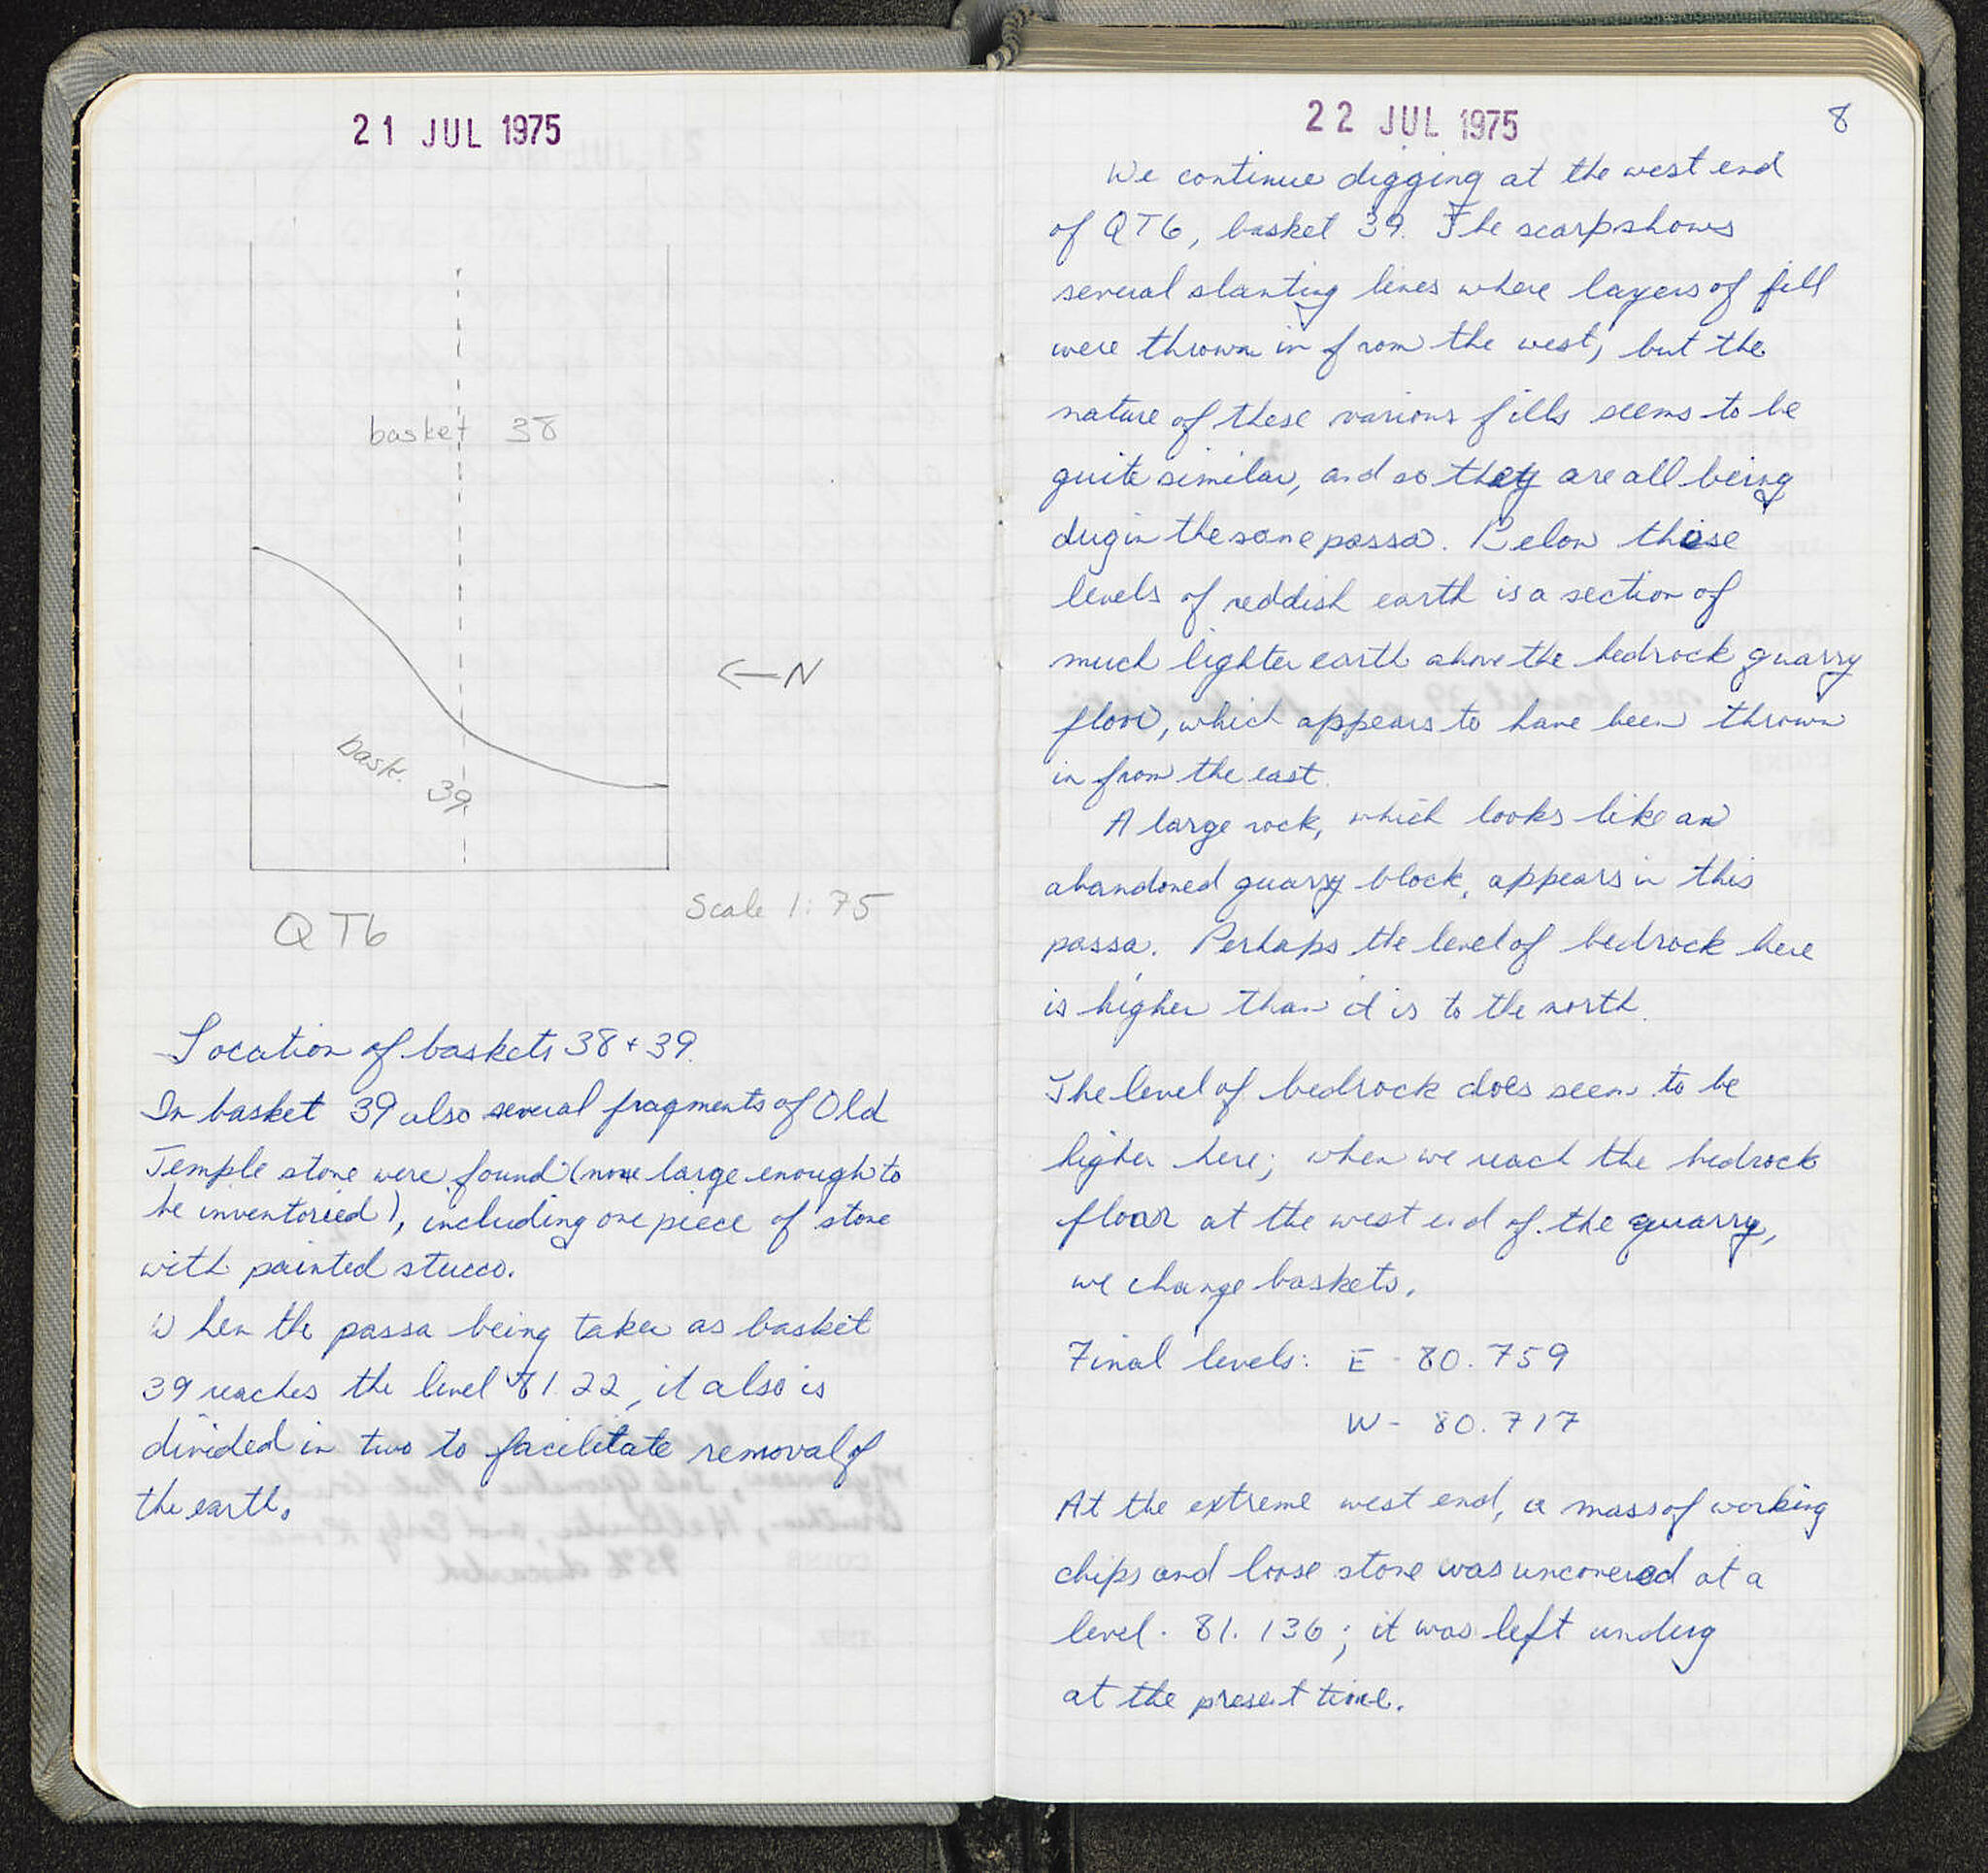 21 JUL 1975
basket 38
← N
bask. 39
Scale 1:75
QT6
Location of baskets 38 + 39.
In basket 39 also several fragments of Old
Temple stone were found (none large enough to
be inventoried), including one piece of stone
with painted stucco.
When the passa being taken as basket
39 reaches the level 81.22, it also is
divided in two to facilitate removal of
the earth.
22 JUL 1975
8
We continue digging at the west end
of QT6, basket 39. The scarp shows
several slanting lines where layers of fill
were thrown in from the west, but the
nature of these various fills seems to be
quite similar, and so they are all being
dug in the same passa. Below these
levels of reddish earth is a section of
much lighter earth above the bedrock quarry
floor, which appears to have been thrown
in from the east.
A large rock, which looks like an
abandoned quarry block, appears in this
passa. Perhaps the level of bedrock here
is higher than it is to the north.
The level of bedrock does seem to be
higher here; when we reach the bedrock
floor at the west end of the quarry,
we change baskets.
Final levels: E - 80.759
W - 80.717
At the extreme west end, a mass of working
chips and loose stone was uncovered at a
level . 81.136 ; it was left undug
at the present time.